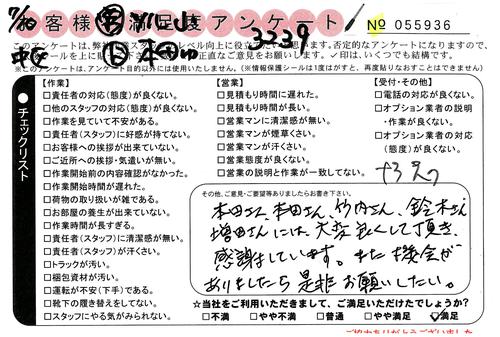 7/30 お客様満足度アンケート
3239
No 055936
このアンケートは、弊社
をお願いします。否定的なアンケートになりますので、
正直なご意見をお願いします。✓印は、いくつでも結構です。
※このアンケートは、アンケート目的以外には使用いたしません。（※情報保護シールは1度はがすと、再度貼りなおすことはできません）
チェックリスト
【作業】
□責任者の対応（態度）が良くない。
□他のスタッフの対応（態度）が良くない。
□作業を見ていて不安がある。
□責任者（スタッフ）に好感が持てない。
□お客様への挨拶が出来ていない。
□ご近所への挨拶・気遣いが無い。
□作業開始前の内容確認がなかった。
□作業開始時間が遅れた。
□荷物の取り扱いが雑である。
□お部屋の養生が出来ていない。
□作業時間が長すぎる。
□責任者（スタッフ）に清潔感が無い。
□責任者（スタッフ）が汗くさい。
□トラックが汚い。
□梱包資材が汚い。
□運転が不安（下手）である。
□靴下の履き替えをしてない。
□スタッフにやる気がみられない。
【営業】
□見積もり時間に遅れた。
□見積もり時間が長い。
□営業マンに清潔感が無い。
□営業マンが煙草くさい。
□営業マンが汗くさい。
□営業態度が良くない。
□営業の説明と作業が一致してない。
【受付・その他】
□電話の対応が良くない。
□オプション業者の説明
・作業が良くない。
□オプション業者の対応
（態度）が良くない。
その他、ご意見・ご要望等ありましたらお書き下さい。
本田さん、本田さん、竹内さん、鈴木さん
増田さんには、大変良くして頂き、
感謝しています。また機会が
ありましたら是非お願いしたい。
☆当社をご利用いただきまして、ご満足いただけたでしょうか？
□不満 □やや不満 □普通 □やや満足 ☑満足
ご協力ありがとうございました